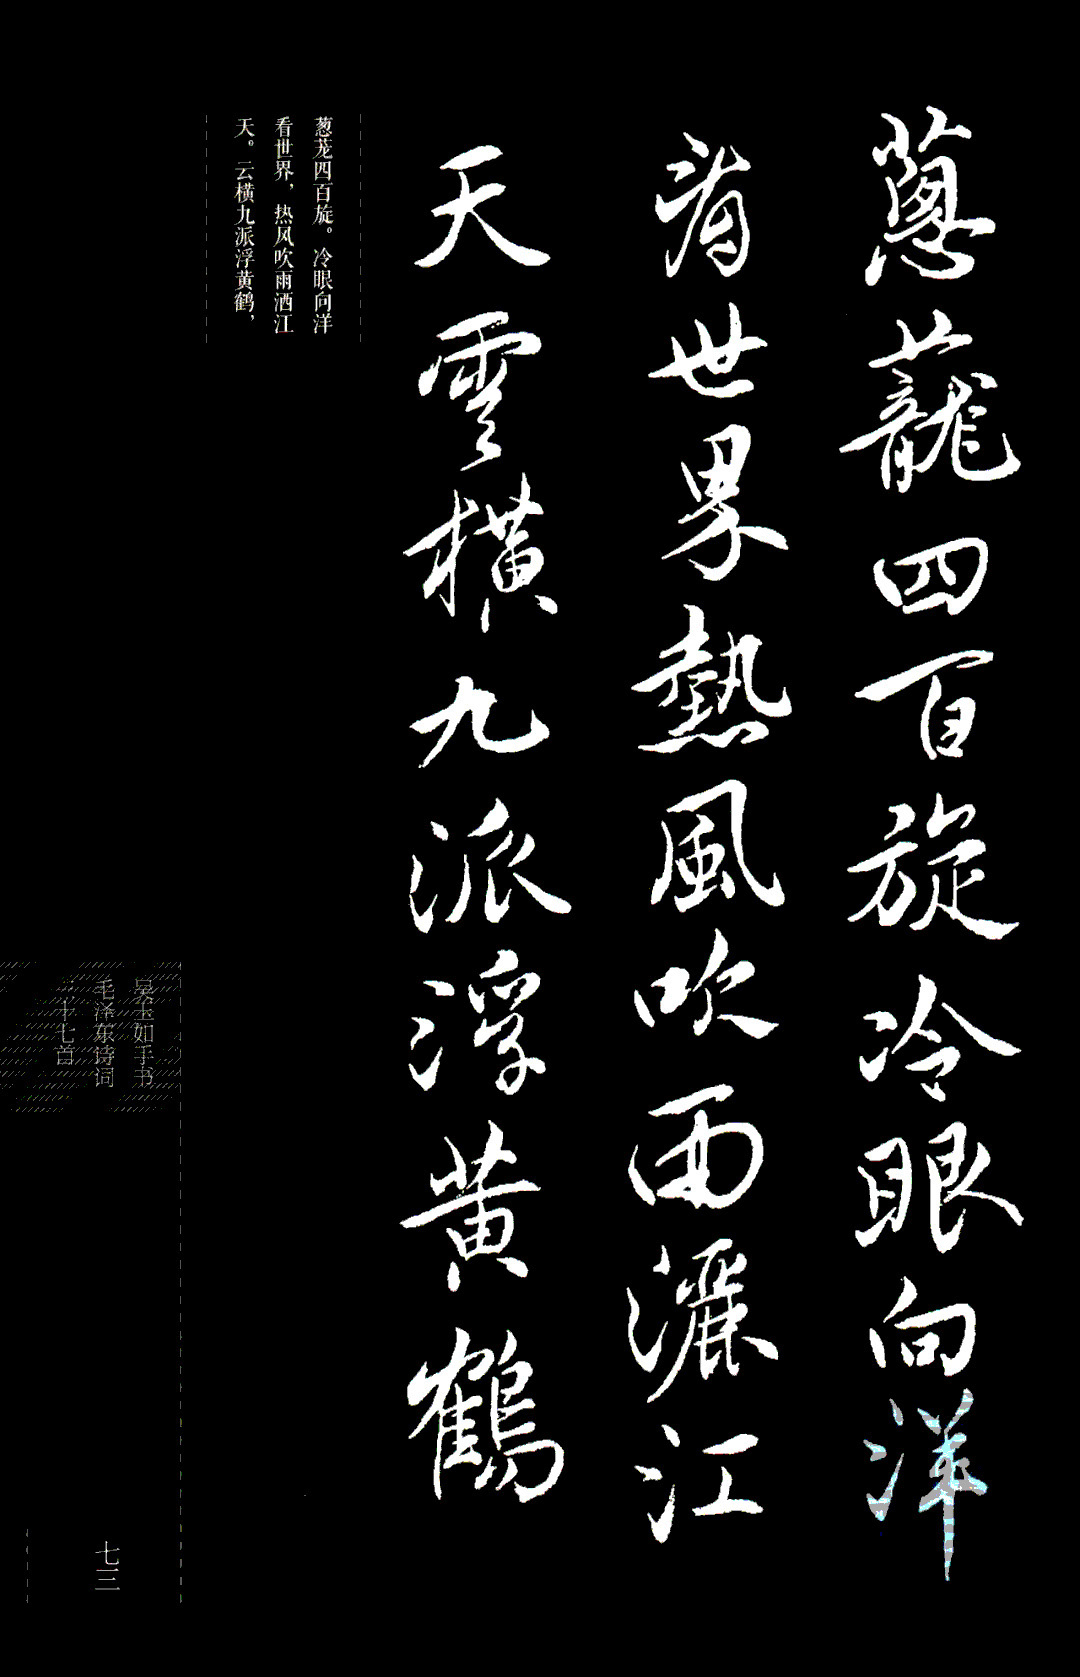 蔥蘢四百旋冷眼向洋
看世界熱風吹雨灑江
天雲橫九派浮黃鶴
葱茏四百旋。冷眼向洋
看世界，热风吹雨洒江
天。云横九派浮黄鹤，
吴玉如手书
毛泽东诗词
三十七首
七三